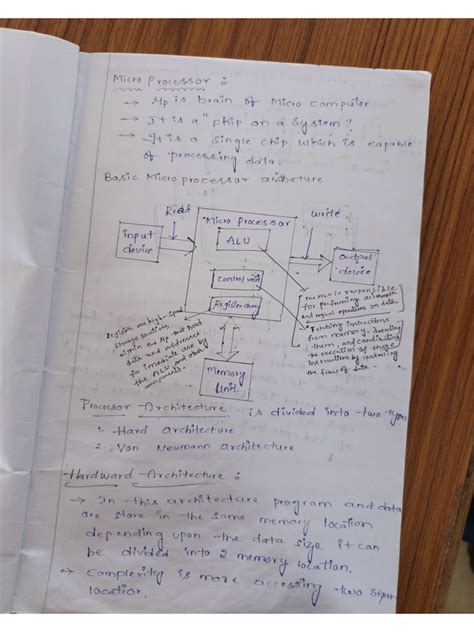 Micro Processor :
→ Mp is brain of Micro computer
→ It is a "chip on a system"
→ It is a single chip which is capable
of processing data.
Basic Micro processor architecture
Read
write
input
device
Micro processor
ALU
Control unit
Register array
output
device
Memory
Unit
the ALU is responsible
for performing arithmetic
and logical operations on data.
Fetching instructions
from memory, decoding
them, and coordinating
the execution of these
instructions by controlling
the flow of data.
Registers are high-speed
storage locations
within the Mp that hold
data and addresses
for immediate use by
the ALU and other
components.
Processor Architecture is divided into two types
1. Hard architecture
2. Von Neumann architecture
Hardward Architecture :
→ In this architecture program and data
are store in the same memory location
depending upon the data size it can
be divided into 2 memory location.
→ Complexity is more accessing two separ
location.